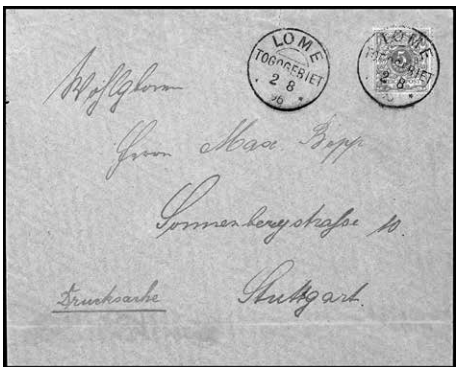 LOME
TOGOGEBIET
2 8
96
LOME
TOGOGEBIET
2 8
Herrn Max. Bopp
Sonnenbergstrasse 10.
Drucksache
Stuttgart.